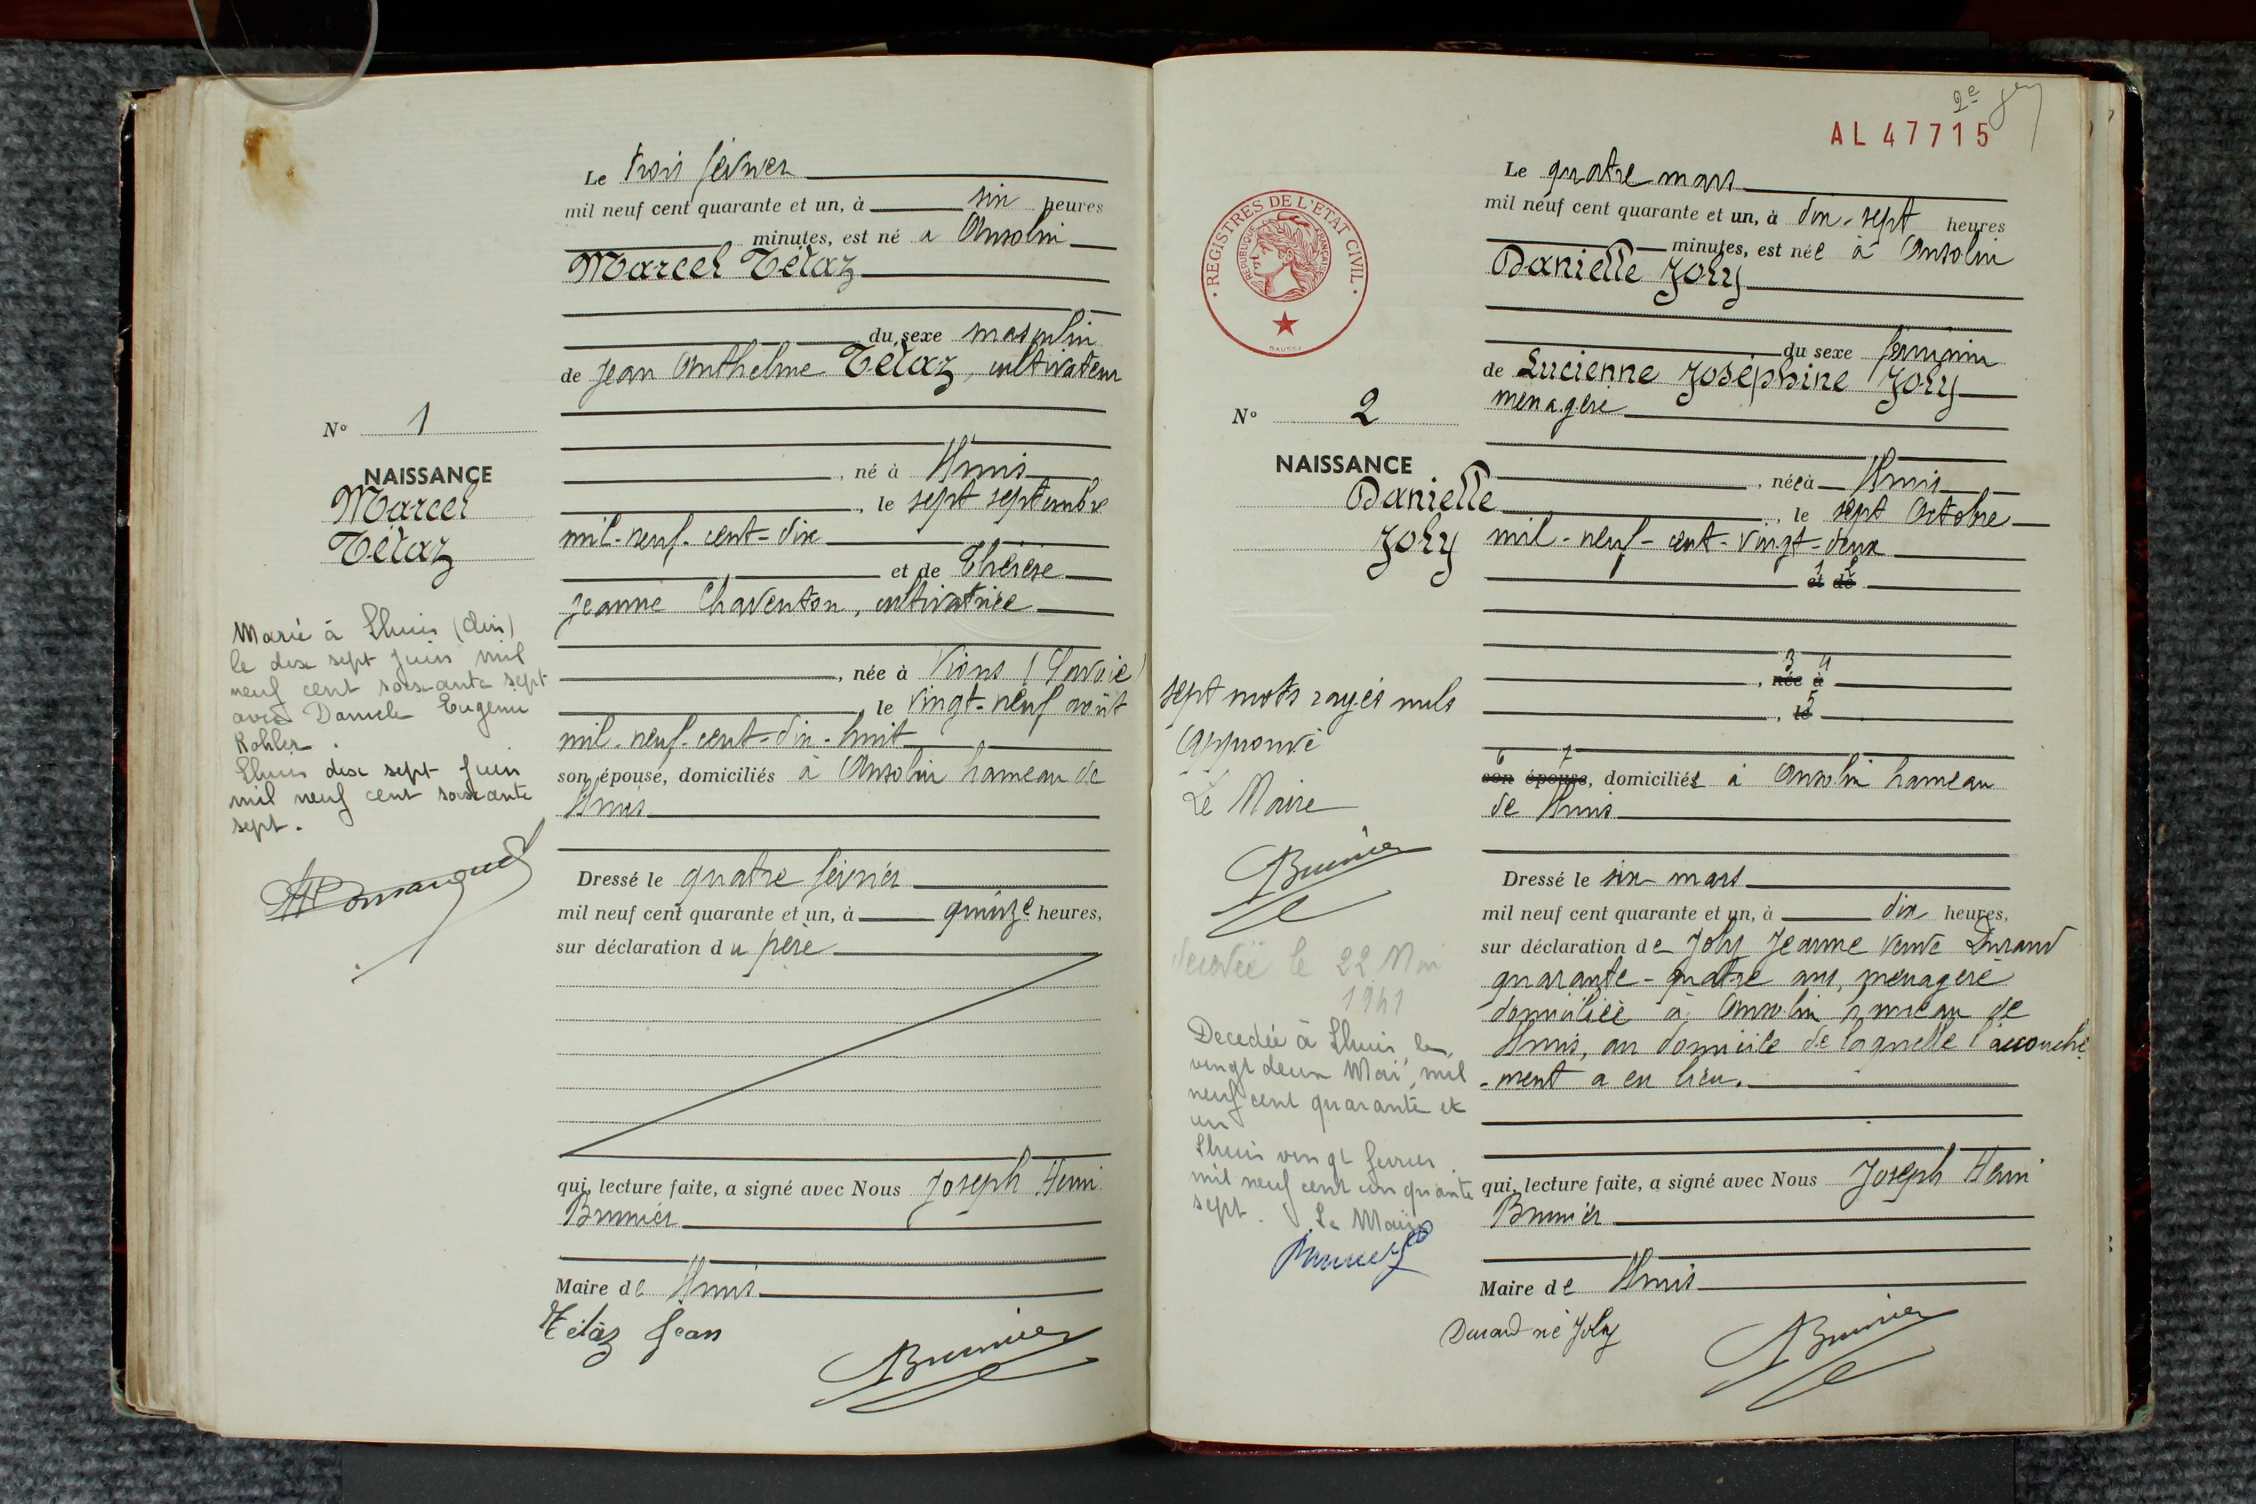 Le trois février
mil neuf cent quarante et un, à six heures
minutes, est né à Ansolin
Marcel Tétaz
du sexe masculin
de Jean Anthelme Tétaz, cultivateur
N° 1
NAISSANCE
Marcel
Tétaz
, né à Lhuis
, le sept septembre
mil-neuf-cent-dix
et de Thérèse
Jeanne Chaventon, cultivatrice
, née à Vions (Savoie)
, le vingt-neuf août
mil-neuf-cent-dix-huit
son épouse, domiciliés à Ansolin hameau de
Lhuis
Marié à Lhuis (Ain)
le dix sept juin mil
neuf cent soixante sept
avec Danielle Eugénie
Kohler.
Lhuis dix sept juin
mil neuf cent soixante
sept.
Dressé le quatre février
mil neuf cent quarante et un, à quinze heures,
sur déclaration du père
qui, lecture faite, a signé avec Nous Joseph Henri
Brunier
Maire de Lhuis
Tétaz Jean
Brunier
2e
AL 47715
REGISTRES DE L'ETAT CIVIL
REPUBLIQUE FRANÇAISE
Le quatre mars
mil neuf cent quarante et un, à dix-sept heures
minutes, est née à Ansolin
Danielle Joly
du sexe féminin
de Lucienne Joséphine Joly
ménagère
N° 2
NAISSANCE
Danielle
Joly
, née à Lhuis
, le sept Octobre
mil-neuf-cent-vingt-deux
1 2
et de
3 4
, née à
5
, le
6 7
son épouse, domiciliée à Ansolin hameau
de Lhuis
sept mots rayés nuls
Approuvé
Le Maire
Brunier
Dressé le six mars
mil neuf cent quarante et un, à dix heures,
sur déclaration de Joly Jeanne veuve Durand
quarante-quatre ans, ménagère
domiciliée à Ansolin hameau de
Lhuis, au domicile de laquelle l'accouche
-ment a eu lieu.
décédée le 22 Mai
1941
Decedée à Lhuis, le
vingt deux Mai, mil
neuf cent quarante et
un
Lhuis vingt fevrier
mil neuf cent cinquante
sept. Le Maire
Brunier
qui, lecture faite, a signé avec Nous Joseph Henri
Brunier
Maire de Lhuis
Durand né Joly
Brunier